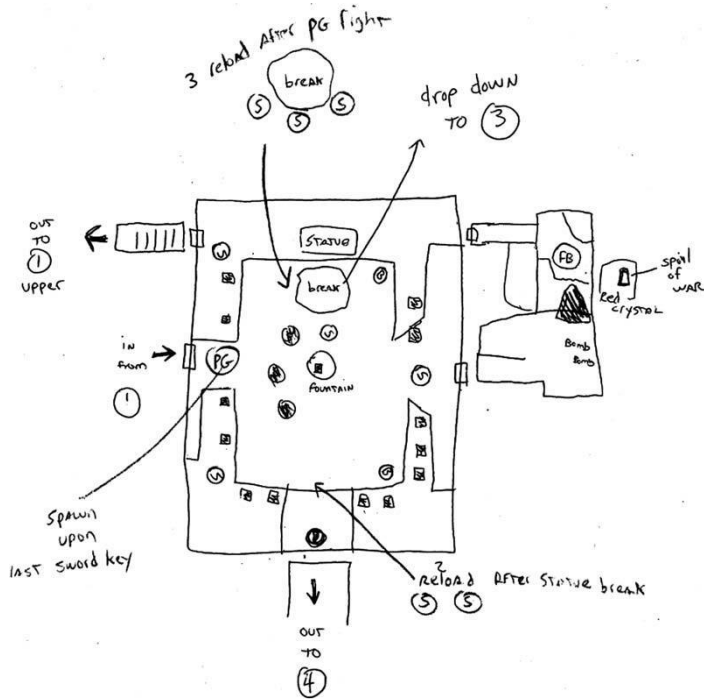 3 reload After PG fight
break
S S S
drop down
TO 3
OUT
TO
1
upper
STATUE
S
break
S
FB
spoil
of
WAR
Red
CRYSTAL
in
from
1
PG
S
FOUNTAIN
S
Bomb
Bomb
S
S
Spawn
upon
last sword key
2
reload After Statue break
S S
OUT
TO
4